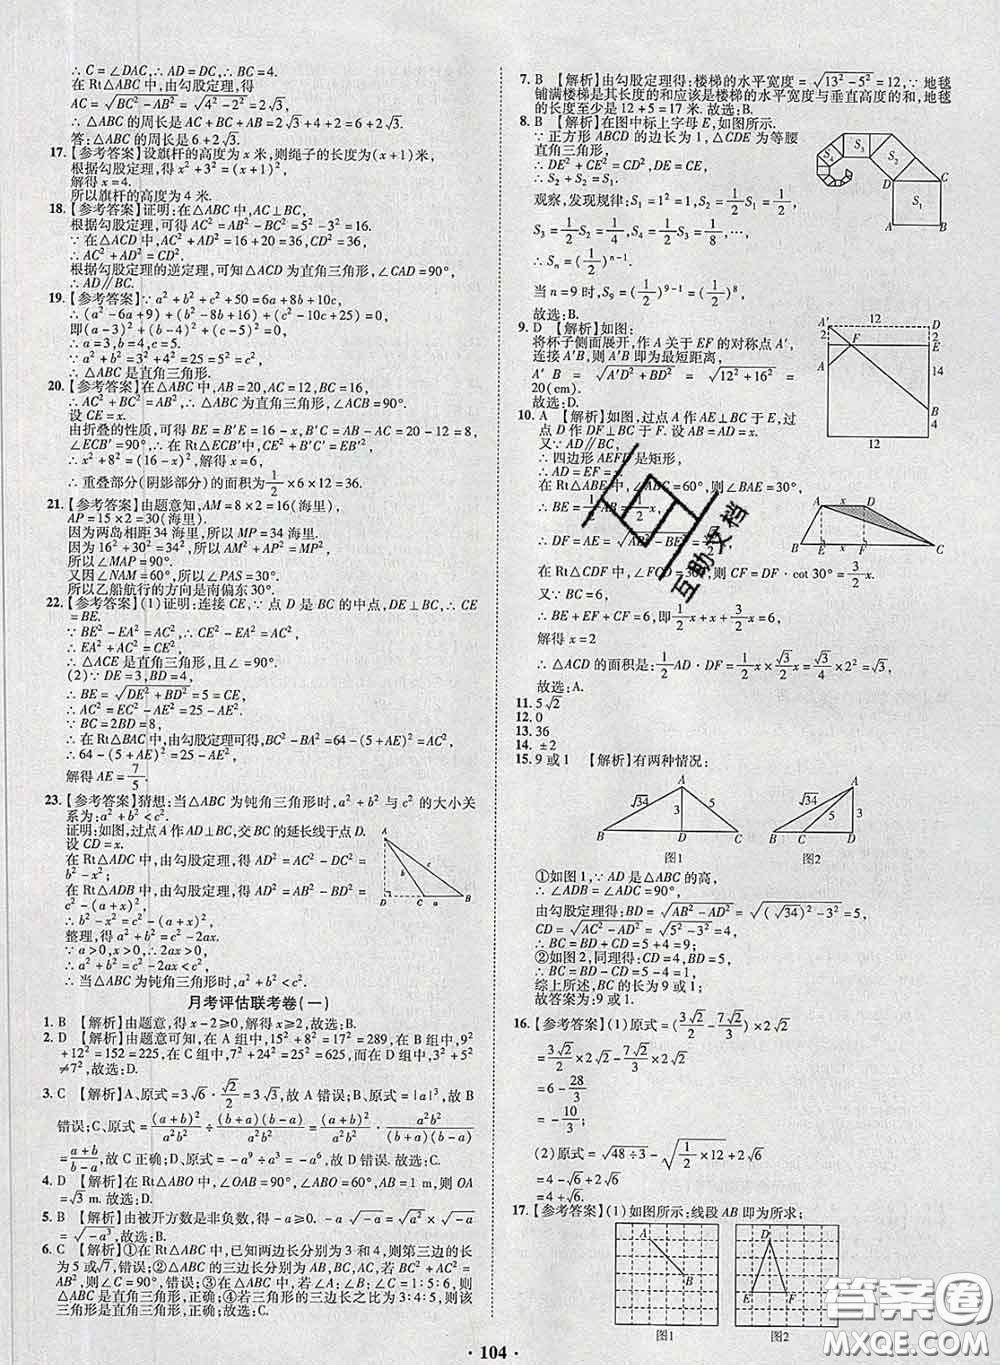 ∴ C = ∠DAC, ∴ AD = DC, ∴ BC = 4.
在 Rt△ABC 中, 由勾股定理, 得
AC = √(BC² − AB²) = √(4² − 2²) = 2√3,
∴ △ABC 的周长是 AC + BC + AB = 2√3 + 4 + 2 = 6 + 2√3.
答: △ABC 的周长是 6 + 2√3.
17.【参考答案】设旗杆的高度为 x 米, 则绳子的长度为 (x + 1) 米,
根据勾股定理, 得 x² + 3² = (x + 1)²,
解得 x = 4.
所以旗杆的高度为 4 米.
18.【参考答案】证明: 在△ABC 中, AC⊥BC,
根据勾股定理, 可得 AC² = AB² − BC² = 5² − 3² = 16.
∵ 在△ACD 中, AC² + AD² = 16 + 20 = 36, CD² = 36,
∴ AC² + AD² = CD².
根据勾股定理的逆定理, 可知△ACD 为直角三角形, ∠CAD = 90°,
∴ AD∥BC.
19.【参考答案】∵ a² + b² + c² + 50 = 6a + 8b + 10c,
∴ (a² − 6a + 9) + (b² − 8b + 16) + (c² − 10c + 25) = 0,
即 (a − 3)² + (b − 4)² + (c − 5)² = 0,
∴ a = 3, b = 4, c = 5.
∵ a² + b² = c²,
∴ △ABC 是直角三角形.
20.【参考答案】在△ABC 中, AB = 20, AC = 12, BC = 16,
∴ AC² + BC² = AB², ∴ △ABC 是直角三角形, ∠ACB = 90°.
设 CE = x.
由折叠的性质, 可得 BE = B′E = 16 − x, B′C = AB′ − AC = 20 − 12 = 8,
∠ECB′ = 90°, ∴ 在 Rt△ECB′ 中, CE² + B′C² = EB′²,
∴ x² + 8² = (16 − x)², 解得 x = 6,
∴ 重叠部分(阴影部分)的面积为 1/2 × 6 × 12 = 36.
21.【参考答案】由题意知, AM = 8 × 2 = 16(海里),
AP = 15 × 2 = 30(海里),
因为两岛相距 34 海里, 所以 MP = 34 海里.
因为 16² + 30² = 34², 所以 AM² + AP² = MP²,
所以∠MAP = 90°.
又因∠NAM = 60°, 所以∠PAS = 30°.
所以乙船航行的方向是南偏东 30°.
22.【参考答案】(1) 证明: 连接 CE, ∵ 点 D 是 BC 的中点, DE⊥BC, ∴ CE
= BE.
∵ BE² − EA² = AC², ∴ CE² − EA² = AC²,
∴ EA² + AC² = CE²,
∴ △ACE 是直角三角形, 且∠ = 90°.
(2) ∵ DE = 3, BD = 4,
∴ BE = √(DE² + BD²) = 5 = CE,
∴ AC² = EC² − AE² = 25 − AE².
∵ BC = 2BD = 8,
∴ 在 Rt△BAC 中, 由勾股定理可得, BC² − BA² = 64 − (5 + AE)² = AC²,
∴ 64 − (5 + AE)² = 25 − AE²,
解得 AE = 7/5.
23.【参考答案】猜想: 当△ABC 为钝角三角形时, a² + b² 与 c² 的大小关
系为: a² + b² < c².
证明: 如图, 过点 A 作 AD⊥BC, 交 BC 的延长线于点 D.
设 CD = x.
在 Rt△ADC 中, 由勾股定理, 得 AD² = AC² − DC² =
b² − x²;
在 Rt△ADB 中, 由勾股定理, 得 AD² = AB² − BD² =
c² − (a + x)²,
∴ b² − x² = c² − (a + x)².
整理, 得 a² + b² = c² − 2ax.
∵ a > 0, x > 0, ∴ 2ax > 0,
∴ a² + b² < c².
∴ 当△ABC 为钝角三角形时, a² + b² < c².
A
b
c
D
C
a
B
月考评估联考卷(一)
1. B 【解析】由题意, 得 x − 2 ≥ 0, 解得 x ≥ 2, 故选: B.
2. D 【解析】由题意可知, 在 A 组中, 15² + 8² = 17² = 289, 在 B 组中, 9²
+ 12² = 152 = 225, 在 C 组中, 7² + 24² = 25² = 625, 在 D 组中, 3² + 5²
≠ 7², 故选: D.
3. C 【解析】A、原式 = 3√6 · √2/2 = 3√3, 故 A 错误; B、原式 = |a|³, 故 B
错误; C、原式 = (a + b)²/a²b² ÷ (b + a)(b − a)/a²b² = (a + b)²/a²b² · a²b²/(b + a)(b − a)
= (a + b)/(b − a), 故 C 正确; D、原式 = −a⁹ ÷ a³ = −a⁶, 故 D 错误. 故选: C.
4. D 【解析】在 Rt△ABO 中, ∠OAB = 90°, ∠ABO = 60°, AB = 1 m, 则 OA
= √3 m. 故选: D.
5. B 【解析】由被开方数是非负数, 得 −a ≥ 0. −a√−a = √a² × √−a =
√−a³, 故选: B.
6. C 【解析】①在 Rt△ABC 中, 已知两边长分别为 3 和 4, 则第三边的长
为 5 或√7, 错误; ②△ABC 的三边长分别为 AB, BC, AC, 若 BC² + AC² =
AB², 则∠C = 90°, 正确; ③在△ABC 中, 若∠A : ∠B : ∠C = 1 : 5 : 6, 则
△ABC 是直角三角形, 正确; ④若三角形的三边长之比为 3 : 4 : 5, 则该
三角形是直角三角形, 正确. 故选: C.
7. B 【解析】由勾股定理得: 楼梯的水平宽度 = √(13² − 5²) = 12, ∵ 地毯
铺满楼梯是其长度的和应该是楼梯的水平宽度与垂直高度的和, 地毯
的长度至少是 12 + 5 = 17 米. 故选: B.
8. B 【解析】在图中标上字母 E, 如图所示.
∵ 正方形 ABCD 的边长为 1, △CDE 为等腰
直角三角形,
∴ DE² + CE² = CD², DE = CE,
∴ S₂ + S₂ = S₁.
观察, 发现规律: S₁ = 1² = 1, S₂ = 1/2 S₁ = 1/2,
S₃ = 1/2 S₂ = 1/4, S₄ = 1/2 S₃ = 1/8, …,
∴ Sₙ = (1/2)ⁿ⁻¹.
当 n = 9 时, S₉ = (1/2)⁹⁻¹ = (1/2)⁸,
故选: B.
E
S₃
S₂
D
C
S₁
A
B
9. D 【解析】如图:
将杯子侧面展开, 作 A 关于 EF 的对称点 A′,
连接 A′B, 则 A′B 即为最短距离,
A′B = √(A′D² + BD²) = √(12² + 16²) =
20(cm).
故选: D.
A′
12
D
2
F
E
2
A
14
B
4
12
10. A 【解析】如图, 过点 A 作 AE⊥BC 于 E, 过
点 D 作 DF⊥BC 于 F. 设 AB = AD = x.
又∵ AD∥BC,
∴ 四边形 AEFD 是矩形,
∴ AD = EF = x.
在 Rt△ABE 中, ∠ABC = 60°, 则∠BAE = 30°,
∴ BE = 1/2 AB = 1/2 x,
∴ DF = AE = √(AB² − BE²) = √3/2 x,
在 Rt△CDF 中, ∠FCD = 30°, 则 CF = DF · cot 30° = 3/2 x.
又∵ BC = 6,
∴ BE + EF + CF = 6, 即 1/2 x + x + 3/2 x = 6,
解得 x = 2
∴ △ACD 的面积是: 1/2 AD · DF = 1/2 x × √3/2 x = √3/4 × 2² = √3,
故选: A.
A
x
D
B
E
x
F
C
11. 5√2
12. 0
13. 36
14. ±2
15. 9 或 1 【解析】有两种情况:
A
√34
3
5
B
D
C
图1
A
√34
5
3
B
C
D
图2
①如图 1, ∵ AD 是△ABC 的高,
∴ ∠ADB = ∠ADC = 90°,
由勾股定理得: BD = √(AB² − AD²) = √((√34)² − 3²) = 5,
CD = √(AC² − AD²) = √(5² − 3²) = 4,
∴ BC = BD + CD = 5 + 4 = 9;
②如图 2, 同理得: CD = 4, BD = 5,
∴ BC = BD − CD = 5 − 4 = 1,
综上所述, BC 的长为 9 或 1;
故答案为: 9 或 1.
16.【参考答案】(1) 原式 = (3√2/2 − 7√2/3) × 2√2
= 3√2/2 × 2√2 − 7√2/3 × 2√2
= 6 − 28/3
= −10/3;
(2) 原式 = √(48 ÷ 3) − √(1/2 × 12) + 2√6
= 4 − √6 + 2√6
= 4 + √6.
17.【参考答案】(1) 如图所示: 线段 AB 即为所求;
A
B
图1
D
E
F
图2
互助文档
答案圈
MXQE.COM
· 104 ·